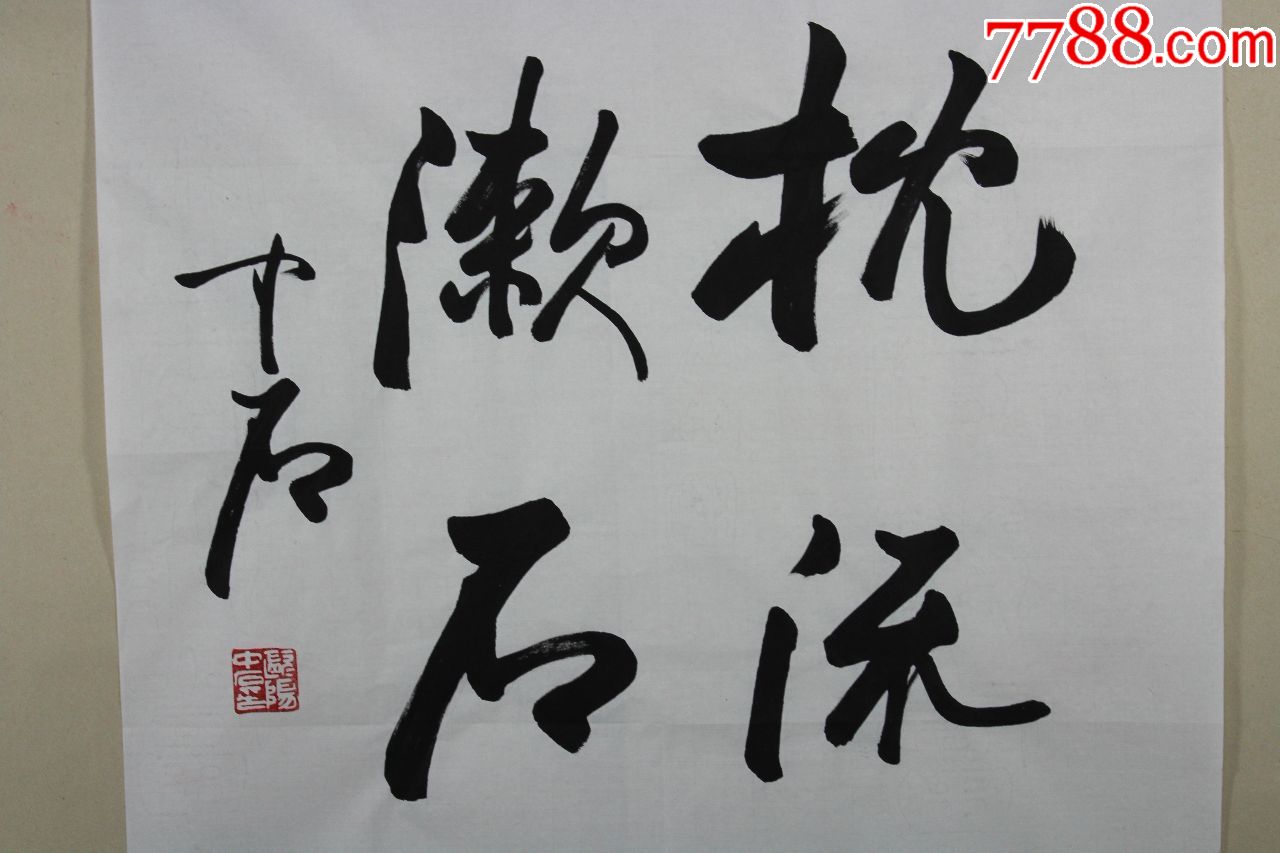 7788.com
枕流
漱石
中石
欧陽中石